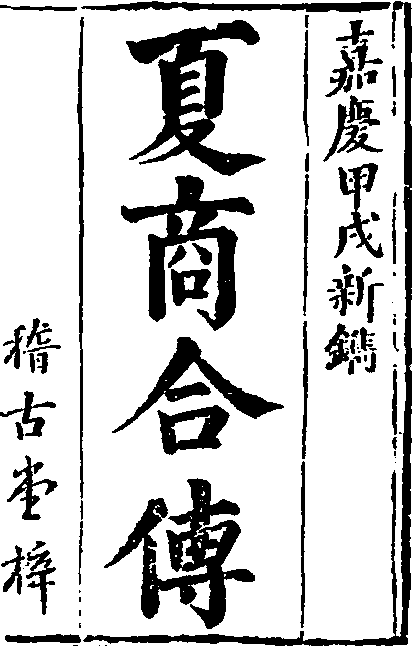 嘉慶甲戌新鐫
夏商合傳
稽古堂梓